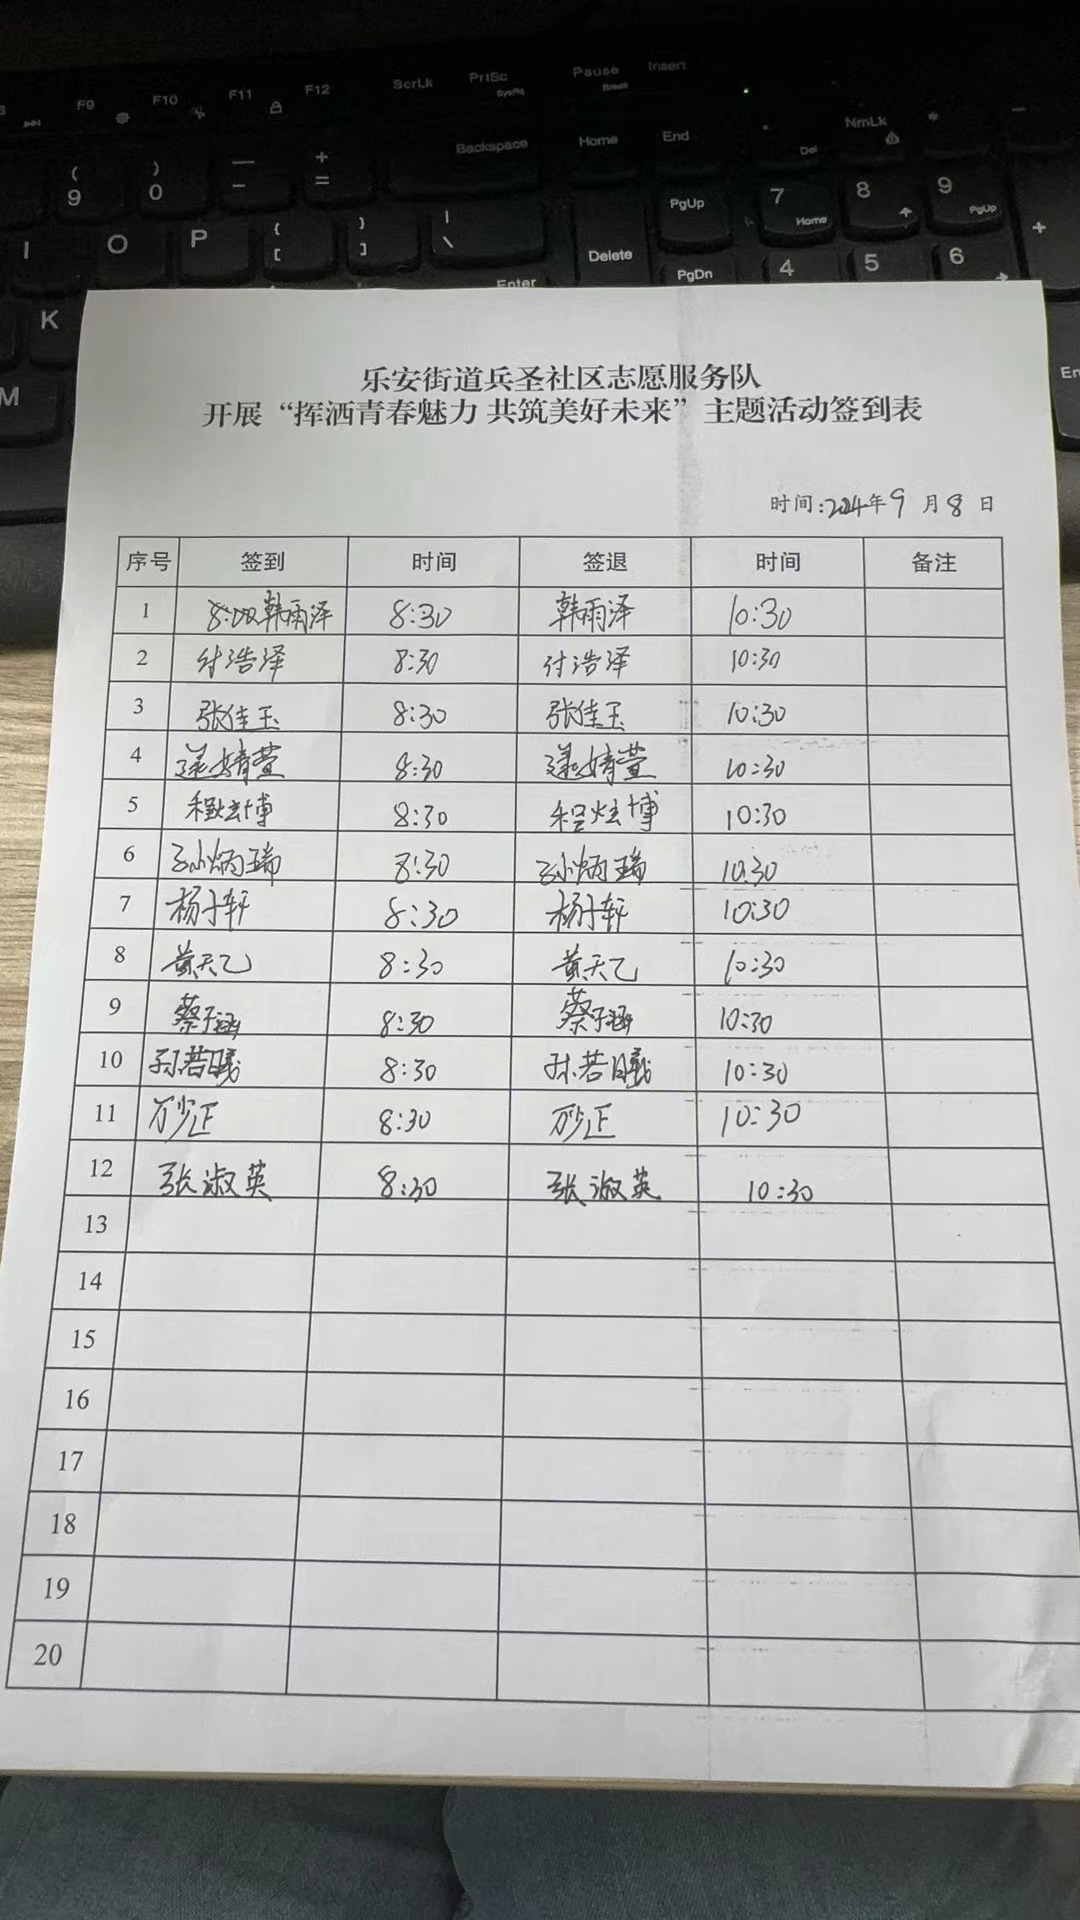 F9 F10 F11 F12 ScrLk PrtSc SysRq Pause Break Insert
( 9 ) 0 — - + = Backspace Home End Del NmLk *
I O P { [ } ] | \ Enter Delete PgUp PgDn 7 Home 8 9 PgUp +
K 4 5 6
M En
乐安街道兵圣社区志愿服务队
开展“挥洒青春魅力 共筑美好未来”主题活动签到表
时间:2024年9月8日
序号 签到 时间 签退 时间 备注
1 韩雨泽 8:30 韩雨泽 10:30
2 付浩泽 8:30 付浩泽 10:30
3 张佳玉 8:30 张佳玉 10:30
4 婧萱 8:30 婧萱 10:30
5 程炫博 8:30 程炫博 10:30
6 孙炳瑞 8:30 孙炳瑞 10:30
7 杨子轩 8:30 杨子轩 10:30
8 黄天乙 8:30 黄天乙 10:30
9 蔡子涵 8:30 蔡子涵 10:30
10 孙若曦 8:30 孙若曦 10:30
11 万少正 8:30 万少正 10:30
12 张淑英 8:30 张淑英 10:30
13
14
15
16
17
18
19
20